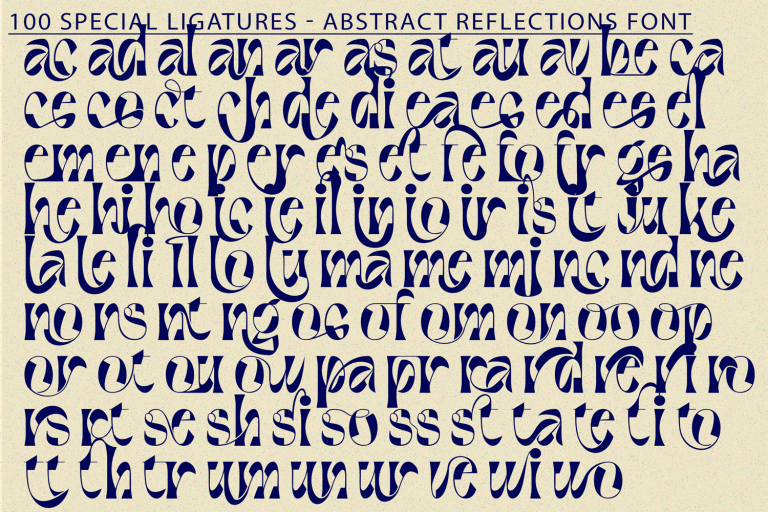 100 SPECIAL LIGATURES - ABSTRACT REFLECTIONS FONT
ac ad al an ar as at au av be ca
ce co ct ch de di ea ec ed es el
em en ep er es et fe fo fr ge ha
he hi ho ic ie il in io ir is it ju ke
la le li ll lo ly ma me mi nc nd ne
no ns nt ng oc of om on oo op
or ot ou ow pa pr ra rd re ri ro
rs rt se sh si so ss st ta te ti to
tt th tr um un ur ve wi wo